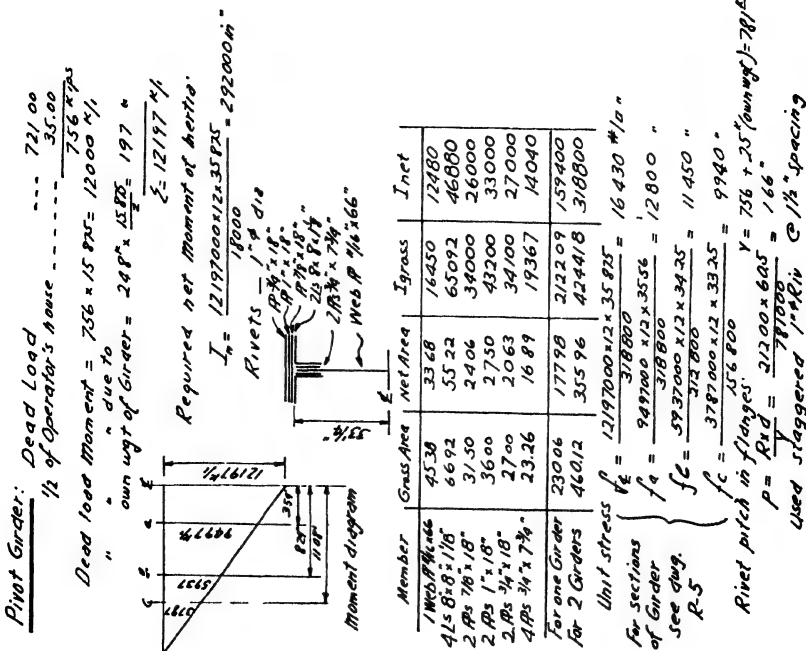 Pivot Girder:
Dead Load --- 721 00
1/2 of Operator's house ------ 35.00
756 Kips
Dead load Moment = 756 x 15 875 = 12000 K/,
" " " due to
own wgt of Girder = 248" x 15 875/2 = 197 "
Σ = 12197 K/,
Required net moment of inertia:
In = 12197000 x 12 x 35 875 / 18000 = 292000 in"
Rivets - 1" ϕ dia
Pl 3/4" x 18"
Pl 1" x 18"
Pl 7/8" x 18"
2 Ls 8 x 8 x 1 1/8
2 Pls 3/4" x 7 3/4"
Web Pl "/16 x 66"
33 1/4"
12197 K/,
9497 K/,
5937
3787
c
b
a
35"
825
1108"
Moment diagram
Member Gross Area Net Area Igross Inet
1 Web Pl "/16 x 66 45 38 33 68 16450 12480
4 Ls 8" x 8" x 1 1/8" 66 92 55 22 65092 46880
2 Pls 7/8" x 18" 31 50 24 06 38000 26000
2 Pls 1" x 18" 36 00 27 50 43200 33000
2 Pls 3/4" x 18" 27 00 20 63 34100 27000
4 Pls 3/4" x 7 3/4" 23.26 16 89 19367 14040
For one Girder 230 06 177 98 212209 159400
For 2 Girders 460.12 355 96 424418 318800
Unit stress
For sections of Girder see dwg. R-5
f℄ = 12197000 x 12 x 35 875 / 318 800 = 16 430 #/□"
fa = 9497000 x 12 x 35 56 / 318 800 = 12800 "
fb = 5937000 x 12 x 34 25 / 212 800 = 11 450 "
fc = 3787000 x 12 x 33 25 / 156 800 = 9940 "
Rivet pitch in flanges V = 756 + 25" (own wgt) = 781"
P = R x d / V = 21200 x 60.5 / 781000 = 1 66"
Used staggered 1" ϕ Riv @ 1 1/2" spacing